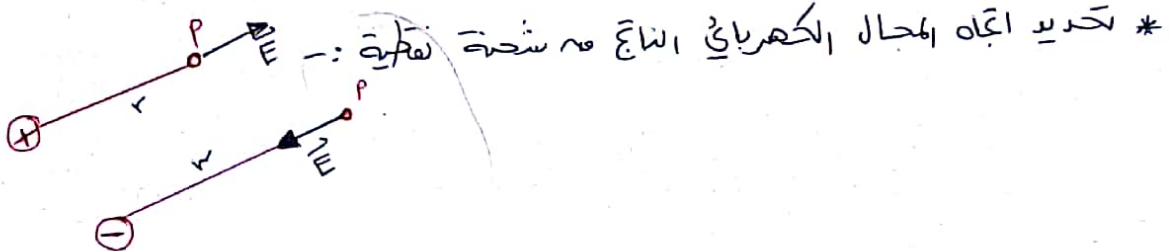 * تحديد اتجاه المجال الكهربائي الناتج من شحنة نقطية :-
P
E
r
+
P
E
r
-